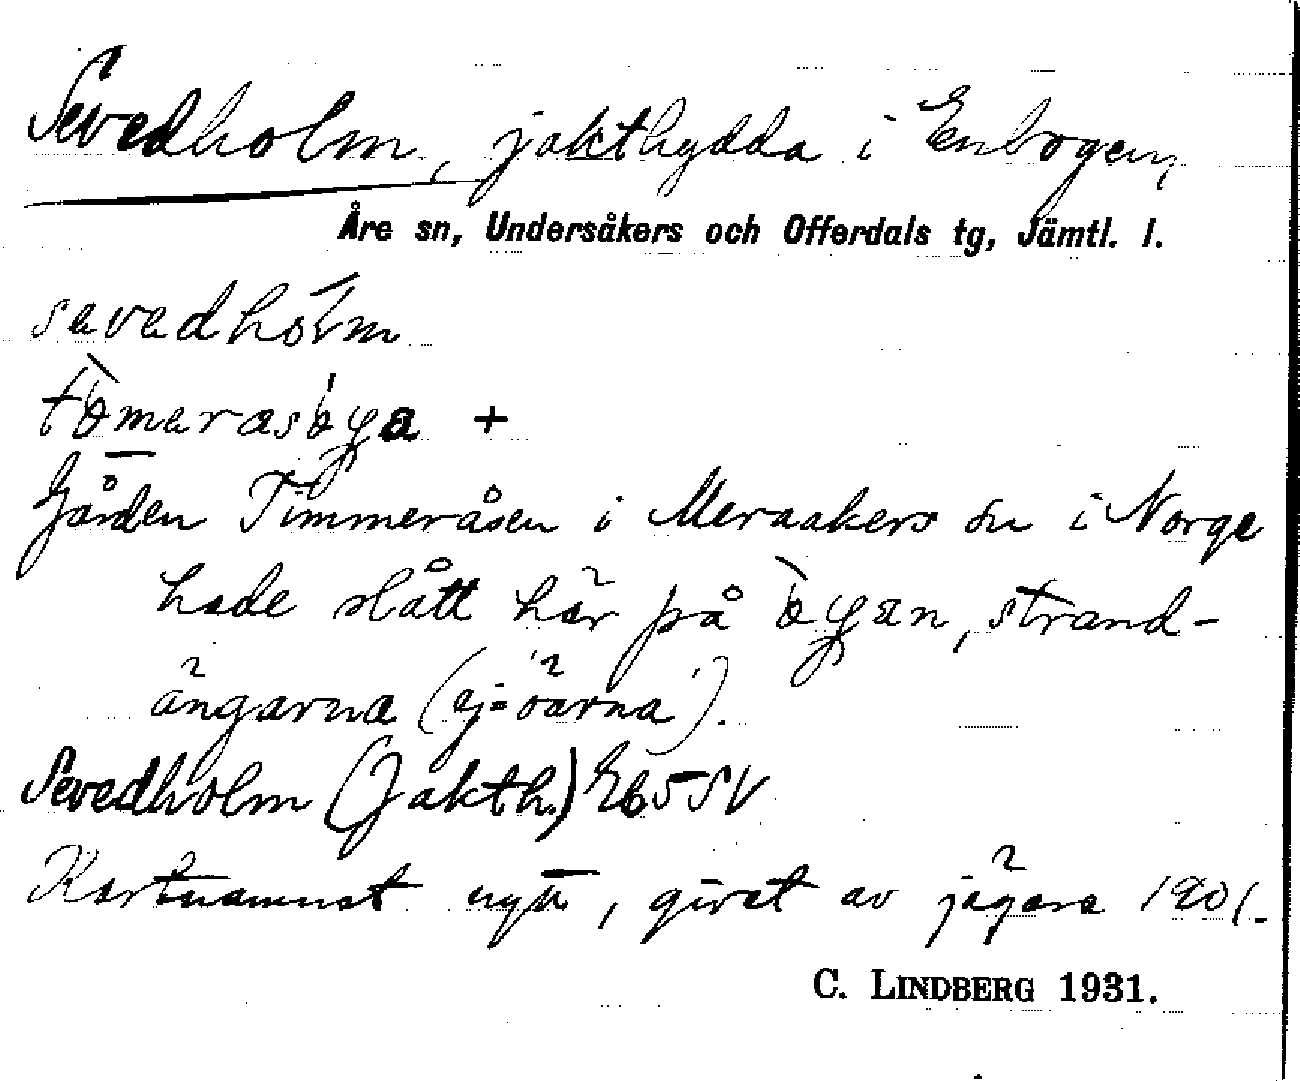 Sevedholm, jakthydda i Enbogen,
Åre sn, Undersåkers och Offerdals tg, Jämtl. l.
sevedholm
+
Gården Timmeråsen i Meraakers sn i Norge
hade slått här på strand-
ängarna (ej = 'öarna').
Sevedholm (Jakth.) Eb5SV
Kartnamnet nytt, givet av jägare 1901.
C. LINDBERG 1931.